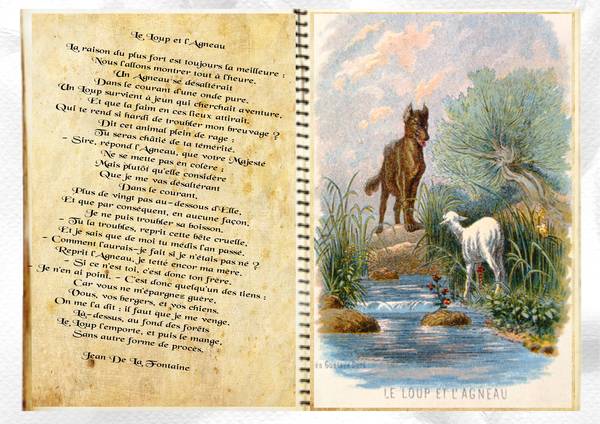 Le Loup et l'Agneau
La raison du plus fort est toujours la meilleure :
Nous l'allons montrer tout à l'heure.
Un Agneau se désaltérait
Dans le courant d'une onde pure.
Un Loup survient à jeun qui cherchait aventure,
Et que la faim en ces lieux attirait.
Qui te rend si hardi de troubler mon breuvage ?
Dit cet animal plein de rage :
Tu seras châtié de ta témérité.
- Sire, répond l'Agneau, que votre Majesté
Ne se mette pas en colère ;
Mais plutôt qu'elle considère
Que je me vas désaltérant
Dans le courant,
Plus de vingt pas au-dessous d'Elle,
Et que par conséquent, en aucune façon,
Je ne puis troubler sa boisson.
- Tu la troubles, reprit cette bête cruelle,
Et je sais que de moi tu médis l'an passé.
- Comment l'aurais-je fait si je n'étais pas né ?
Reprit l'Agneau, je tette encor ma mère.
- Si ce n'est toi, c'est donc ton frère.
- Je n'en ai point. - C'est donc quelqu'un des tiens :
Car vous ne m'épargnez guère,
Vous, vos bergers, et vos chiens.
On me l'a dit : il faut que je me venge.
Là-dessus, au fond des forêts
Le Loup l'emporte, et puis le mange,
Sans autre forme de procès.
Jean De La Fontaine
LE LOUP ET L'AGNEAU